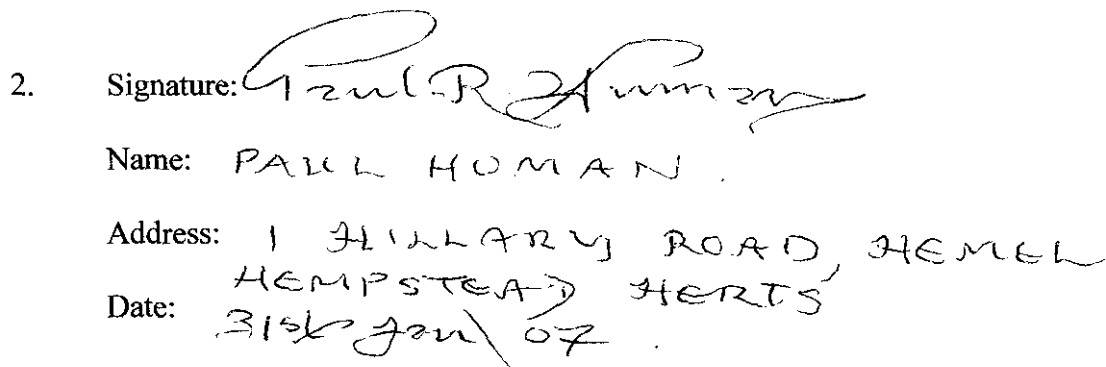 2. Signature: Paul R Human
Name: PAUL HUMAN.
Address: 1 HILLARY ROAD, HEMEL
HEMPSTEAD HERTS
Date: 31st Jan 07.